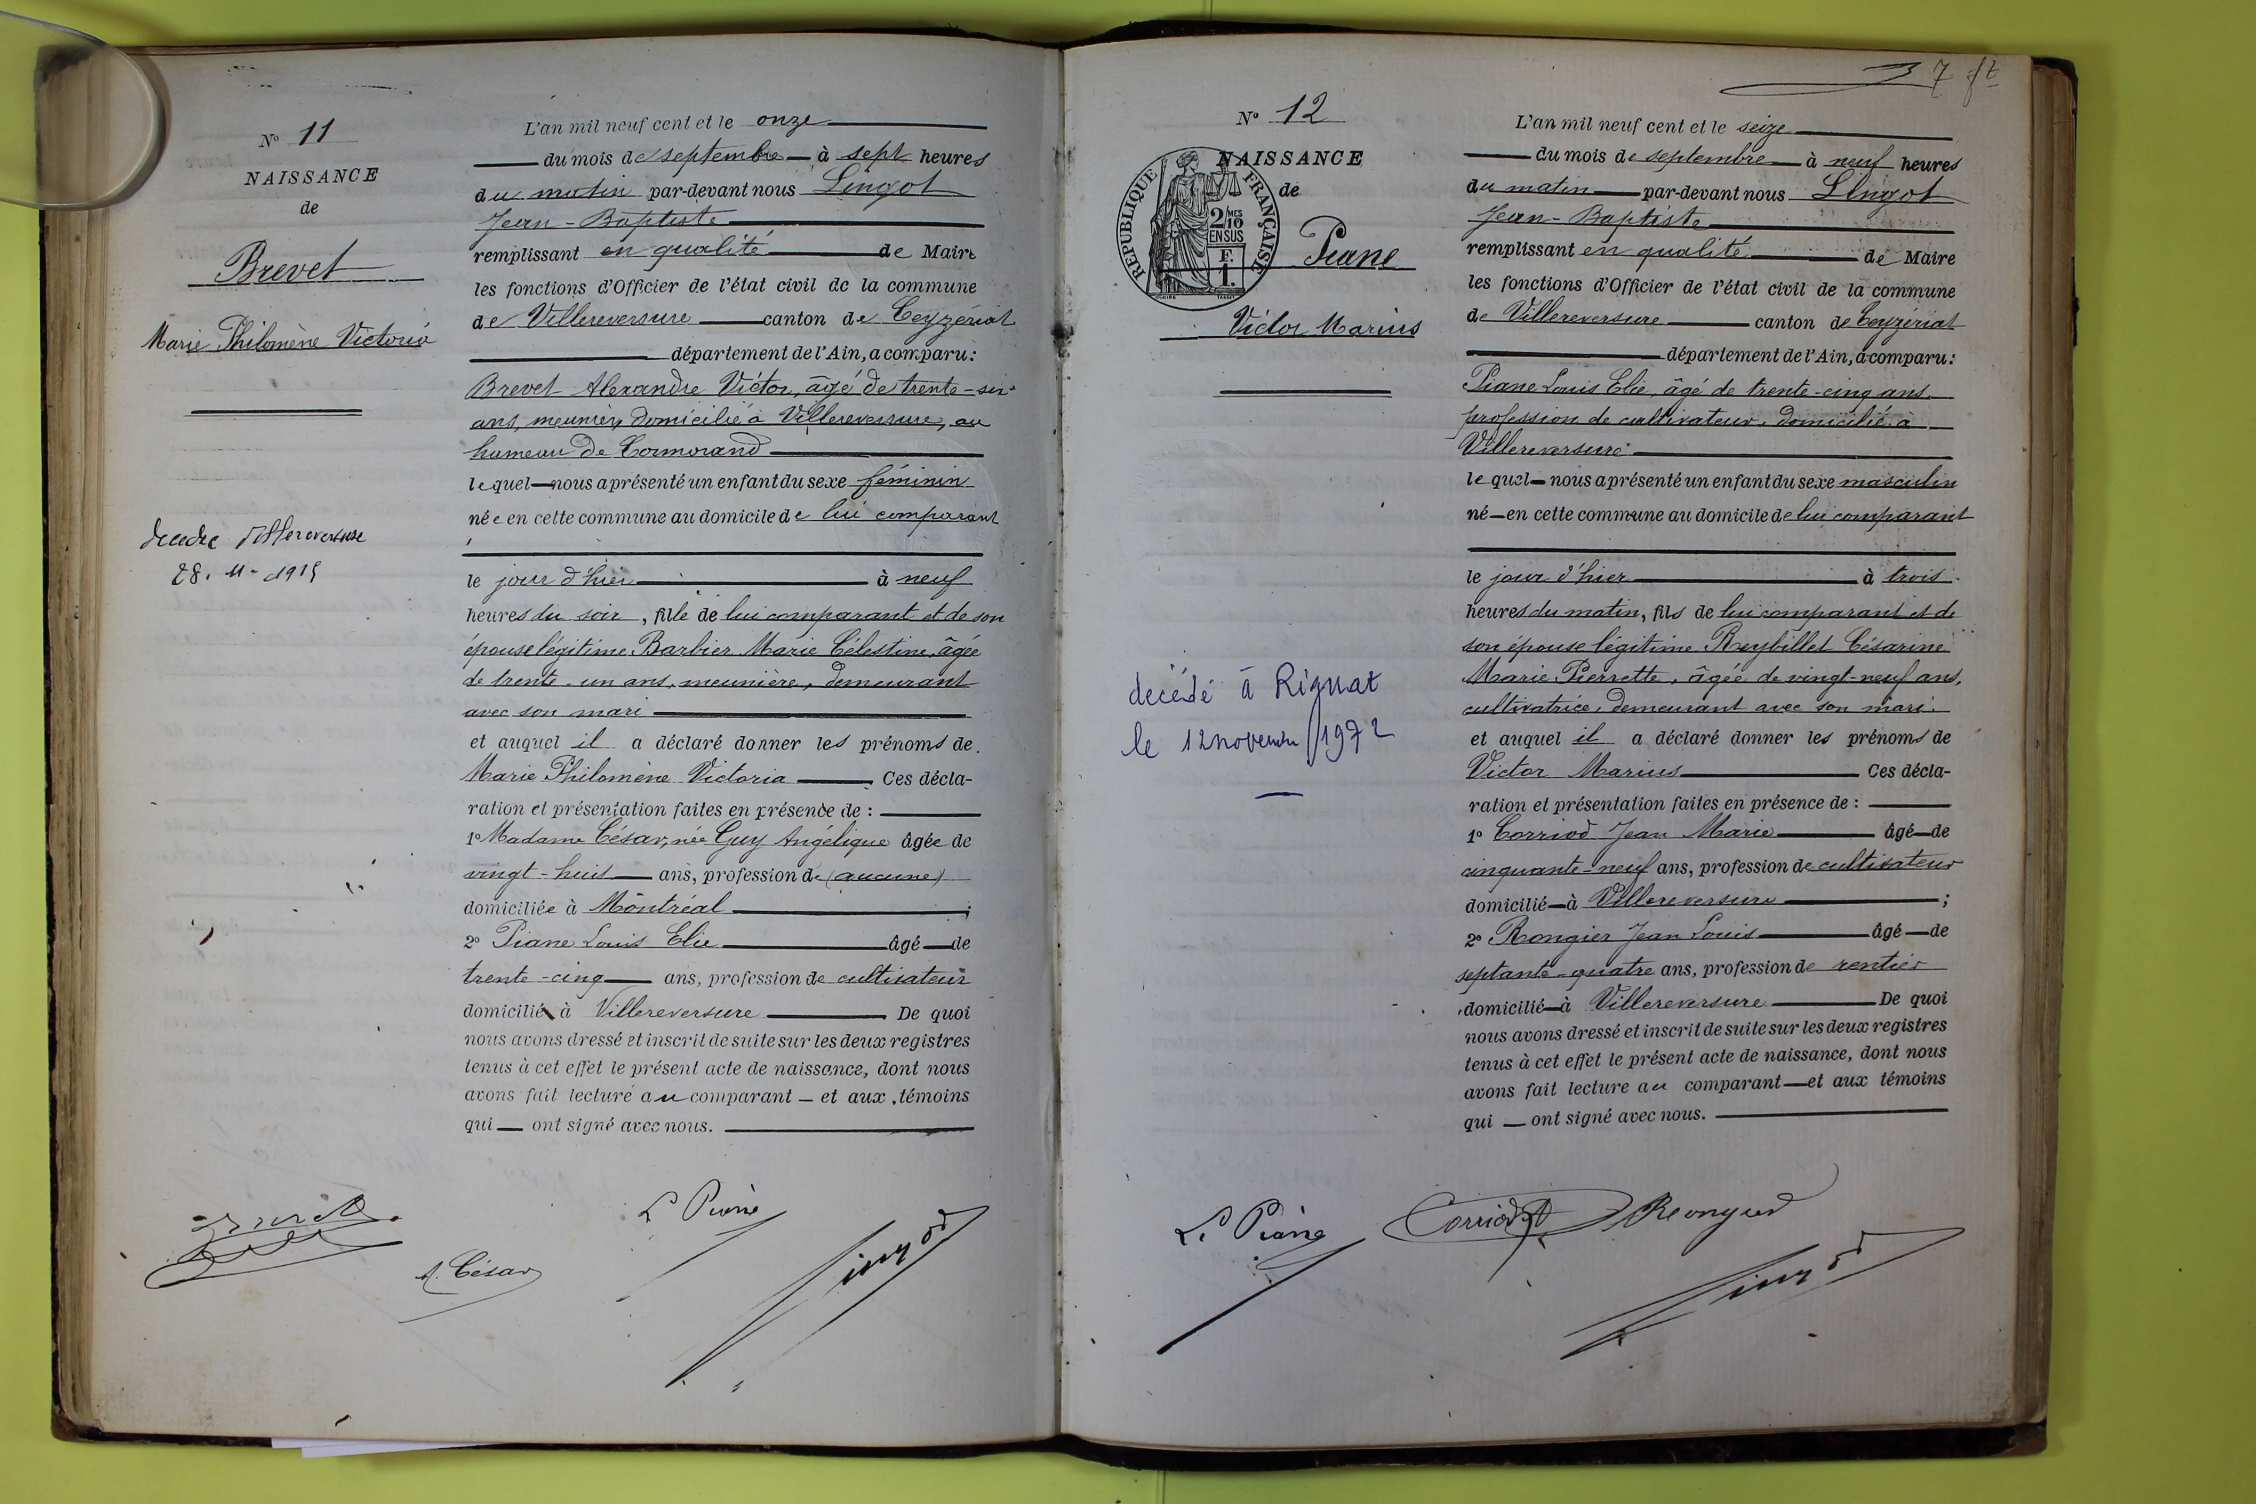 N° 11
NAISSANCE
de
Brevet
Marie Philomène Victoria
Villereversure
28. 11 -
L'an mil neuf cent et le onze
du mois de septembre à sept heures
du matin par-devant nous Lingot
Jean-Baptiste
remplissant en qualité de Maire
les fonctions d'Officier de l'état civil de la commune
de Villereversure canton de Ceyzériat
département de l'Ain, a comparu:
Brevet Alexandre Victor, âgé de trente-six
ans, meunier, domicilié à Villereversure, au
hameau de Cormorand
lequel nous a présenté un enfant du sexe féminin
née en cette commune au domicile de lui comparant
le jour d'hier à neuf
heures du soir, fille de lui comparant et de son
épouse légitime Barbier Marie Célestine, âgée
de trente-un ans, meunière, demeurant
avec son mari
et auquel il a déclaré donner les prénoms de
Marie Philomène Victoria Ces décla-
ration et présentation faites en présence de :
1° Madame César, née Guy Angélique âgée de
vingt-huit ans, profession de (aucune)
domiciliée à Montréal ;
2° Piane Louis Elie âgé de
trente-cinq ans, profession de cultivateur
domicilié à Villereversure De quoi
nous avons dressé et inscrit de suite sur les deux registres
tenus à cet effet le présent acte de naissance, dont nous
avons fait lecture au comparant et aux témoins
qui ont signé avec nous.
Brevet
A. César
L Piane
Lingot
7
N° 12
NAISSANCE
de
RÉPUBLIQUE FRANÇAISE
2/10 MES
EN SUS
F.
1.
Piane
Victor Marius
decédé à Rignat
le 12 novembre 1972
L'an mil neuf cent et le seize
du mois de septembre à neuf heures
du matin par-devant nous Lingot
Jean-Baptiste
remplissant en qualité de Maire
les fonctions d'Officier de l'état civil de la commune
de Villereversure canton de Ceyzériat
département de l'Ain, a comparu:
Piane Louis Elie, âgé de trente-cinq ans
profession de cultivateur, domicilié à
Villereversure
lequel nous a présenté un enfant du sexe masculin
né en cette commune au domicile de lui comparant
le jour d'hier à trois
heures du matin, fils de lui comparant et de
son épouse légitime Reybillet Césarine
Marie Pierrette, âgée de vingt-neuf ans,
cultivatrice, demeurant avec son mari.
et auquel il a déclaré donner les prénoms de
Victor Marius Ces décla-
ration et présentation faites en présence de :
1° Corriod Jean Marie âgé de
cinquante-neuf ans, profession de cultivateur
domicilié à Villereversure ;
2° Rongier Jean Louis âgé de
septante-quatre ans, profession de rentier
domicilié à Villereversure De quoi
nous avons dressé et inscrit de suite sur les deux registres
tenus à cet effet le présent acte de naissance, dont nous
avons fait lecture au comparant et aux témoins
qui ont signé avec nous.
L. Piane
Corriod
Lingot